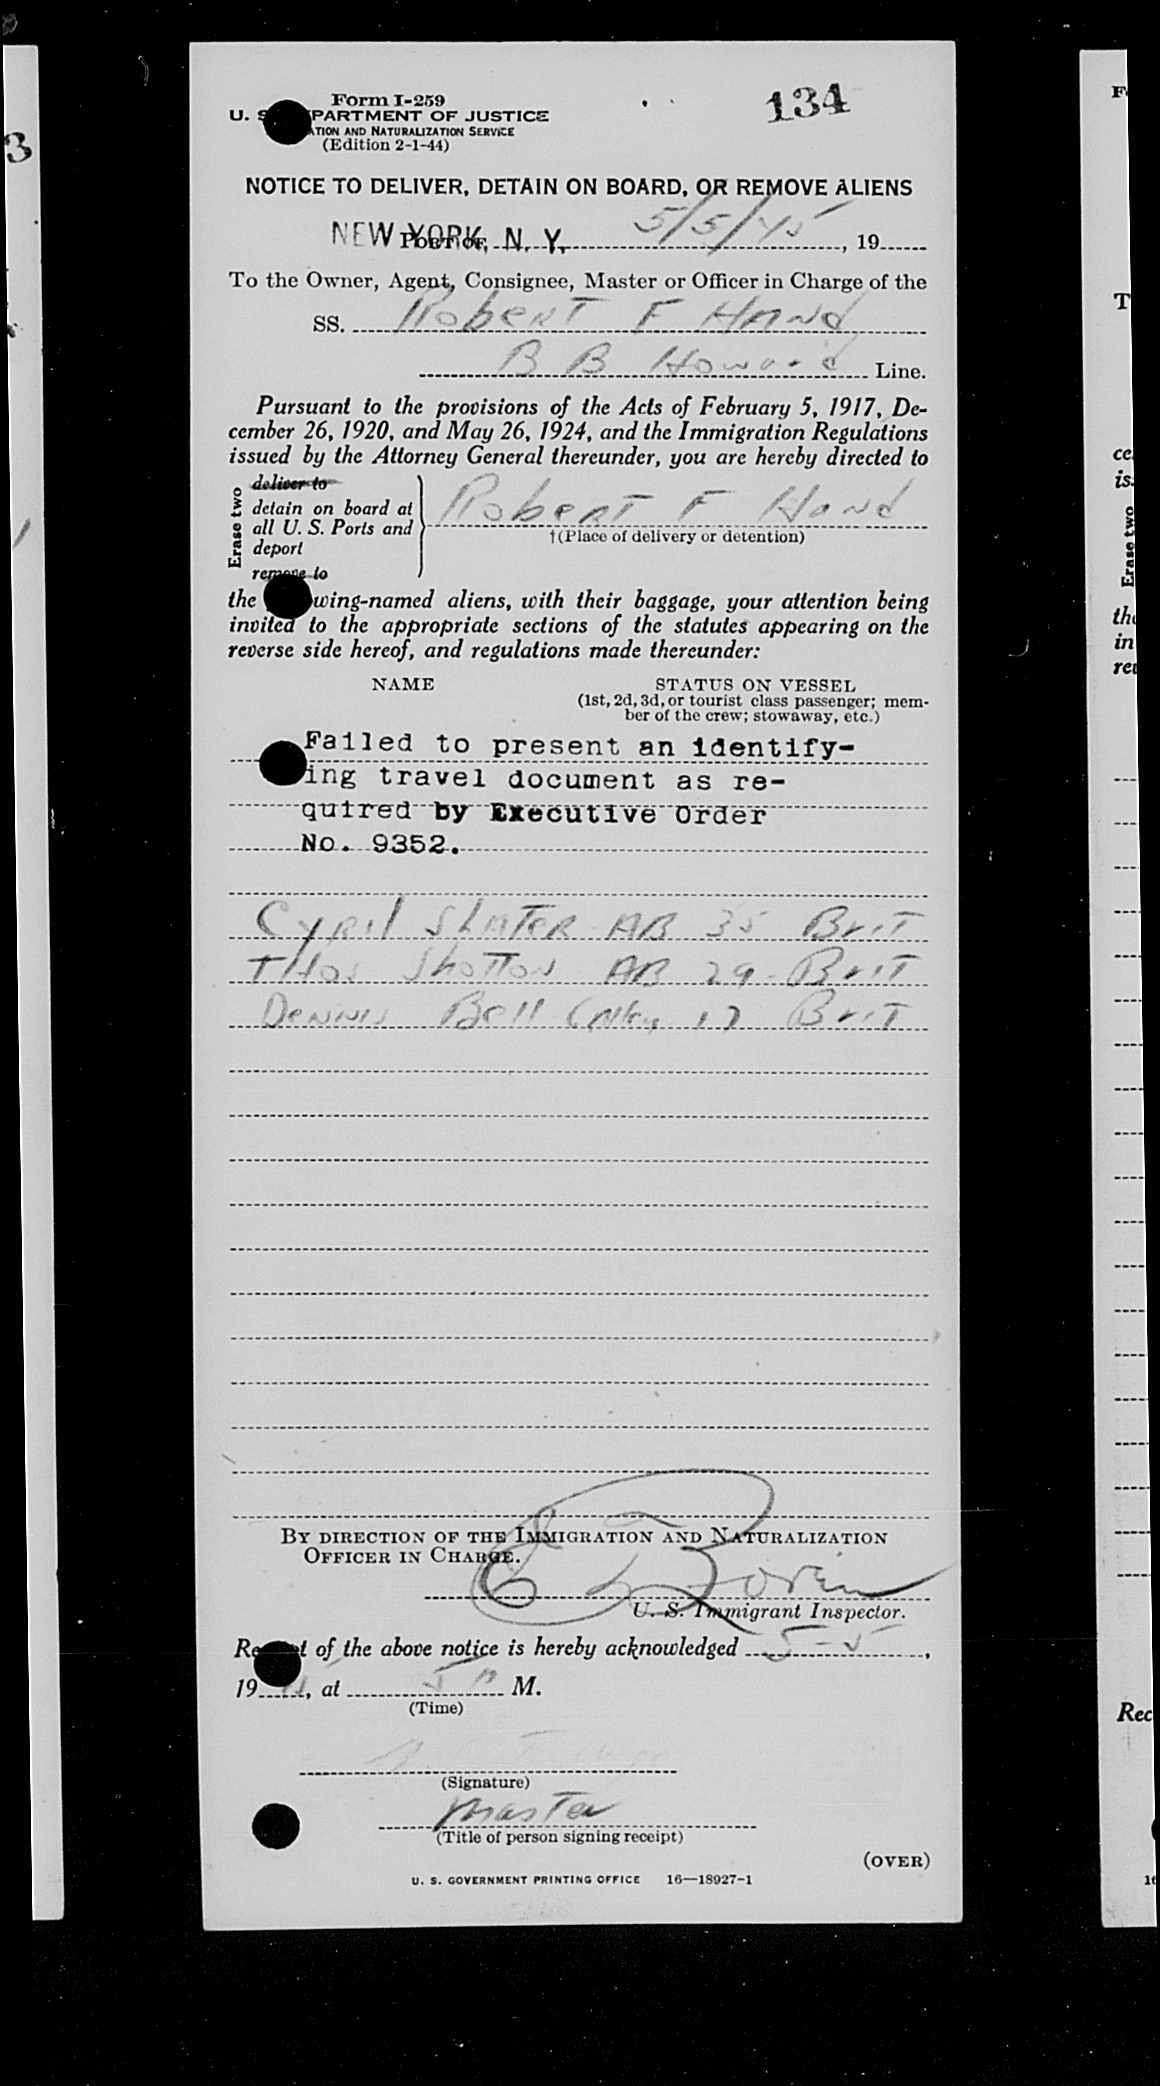 Form I-259
134
U. S. DEPARTMENT OF JUSTICE
IMMIGRATION AND NATURALIZATION SERVICE
(Edition 2-1-44)
NOTICE TO DELIVER, DETAIN ON BOARD, OR REMOVE ALIENS
NEW YORK, N. Y. PORT OF 5/5/45, 19
To the Owner, Agent, Consignee, Master or Officer in Charge of the
SS. Robert F Hand
B B Howard Line.
Pursuant to the provisions of the Acts of February 5, 1917, De-
cember 26, 1920, and May 26, 1924, and the Immigration Regulations
issued by the Attorney General thereunder, you are hereby directed to
Erase two
deliver to
detain on board at
all U. S. Ports and
deport
remove to
Robert F Hand
†(Place of delivery or detention)
the following-named aliens, with their baggage, your attention being
invited to the appropriate sections of the statutes appearing on the
reverse side hereof, and regulations made thereunder:
NAME STATUS ON VESSEL
(1st, 2d, 3d, or tourist class passenger; mem-
ber of the crew; stowaway, etc.)
Failed to present an identify-
ing travel document as re-
quired by Executive Order
No. 9352.
Cyril Slater AB 35 Brit
Thos Shotton AB 29 Brit
Dennis Bell Galley 17 Brit
BY DIRECTION OF THE IMMIGRATION AND NATURALIZATION
OFFICER IN CHARGE.
U. S. Immigrant Inspector.
Receipt of the above notice is hereby acknowledged 5-5,
1945, at 5 P M.
(Time)
(Signature)
Master
(Title of person signing receipt)
(OVER)
U. S. GOVERNMENT PRINTING OFFICE 16—18927-1